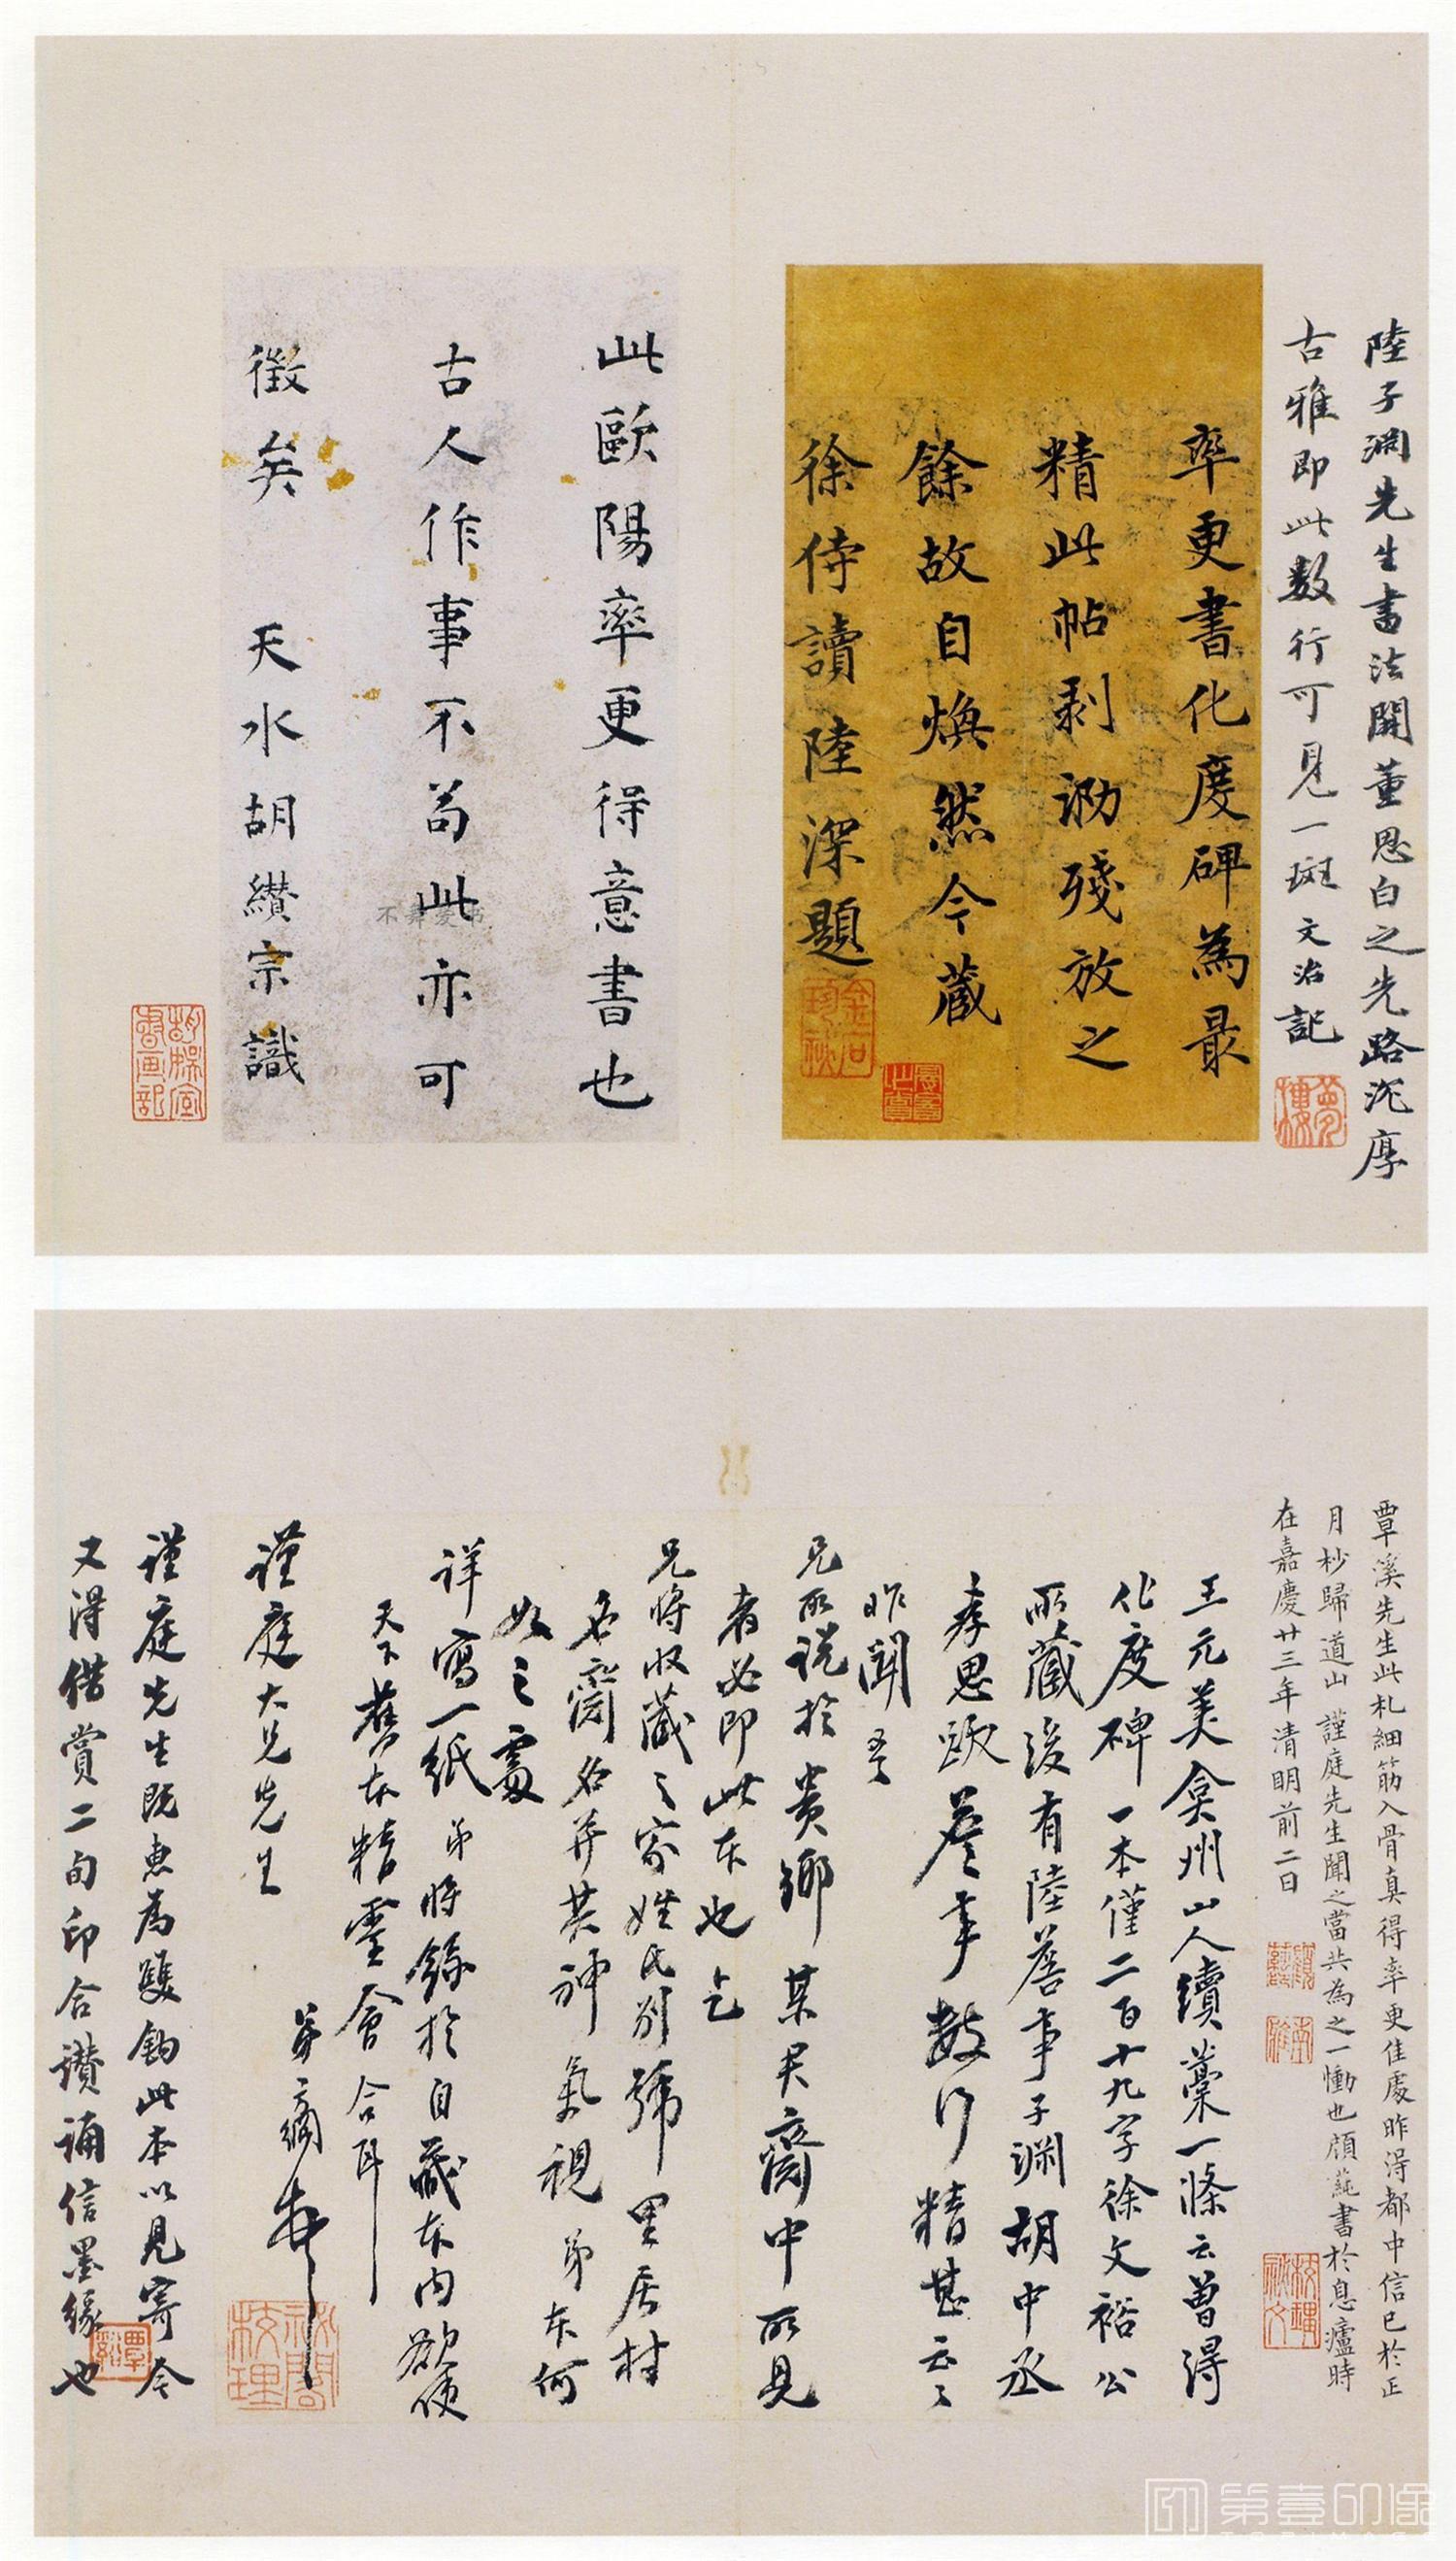 陸子淵先生書法開董思白之先路沉厚
古雅即此數行可見一斑文治記
夢樓
率更書化度碑為最
精此帖剥泐殘放之
餘故自煥然今藏
徐侍讀陸深題
金石珍秘
此歐陽率更得意書也
古人作事不苟此亦可
徵矣 天水胡纘宗識
覃溪先生此札細筋入骨真得率更佳處昨得都中信已於正
月杪歸道山謹庭先生聞之當共為之一慟也顧蒓書於息廬時
在嘉慶廿三年清明前二日
王元美弇州山人續藁一條云曾得
化度碑一本僅二百十九字徐文裕公
所藏後有陸詹事子淵胡中丞
孝思跋詹事數行精甚云々
昨聞
兄所説於貴鄉某君齋中所見
者必即此本也乞
兄將收藏之家姓氏別號里居村
名齋名并其神氣視弟本何
如之處
詳寫一紙弟將錄於自藏本内欲使
天下舊本精靈會合耳
謹庭大兄先生
弟方綱
秘閣校理
謹庭先生既惠為雙鉤此本以見寄今
又得借賞二旬印合讚誦信墨緣也
覃谿
第壹印像